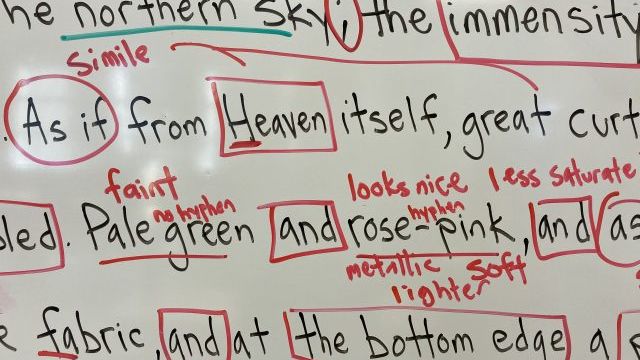 he northern sky; the immensity
simile
. As if from Heaven itself, great curt
faint no hyphen looks nice hyphen less saturate
led. Pale green and rose-pink, and as
metallic soft
lighter
e fabric, and at the bottom edge a